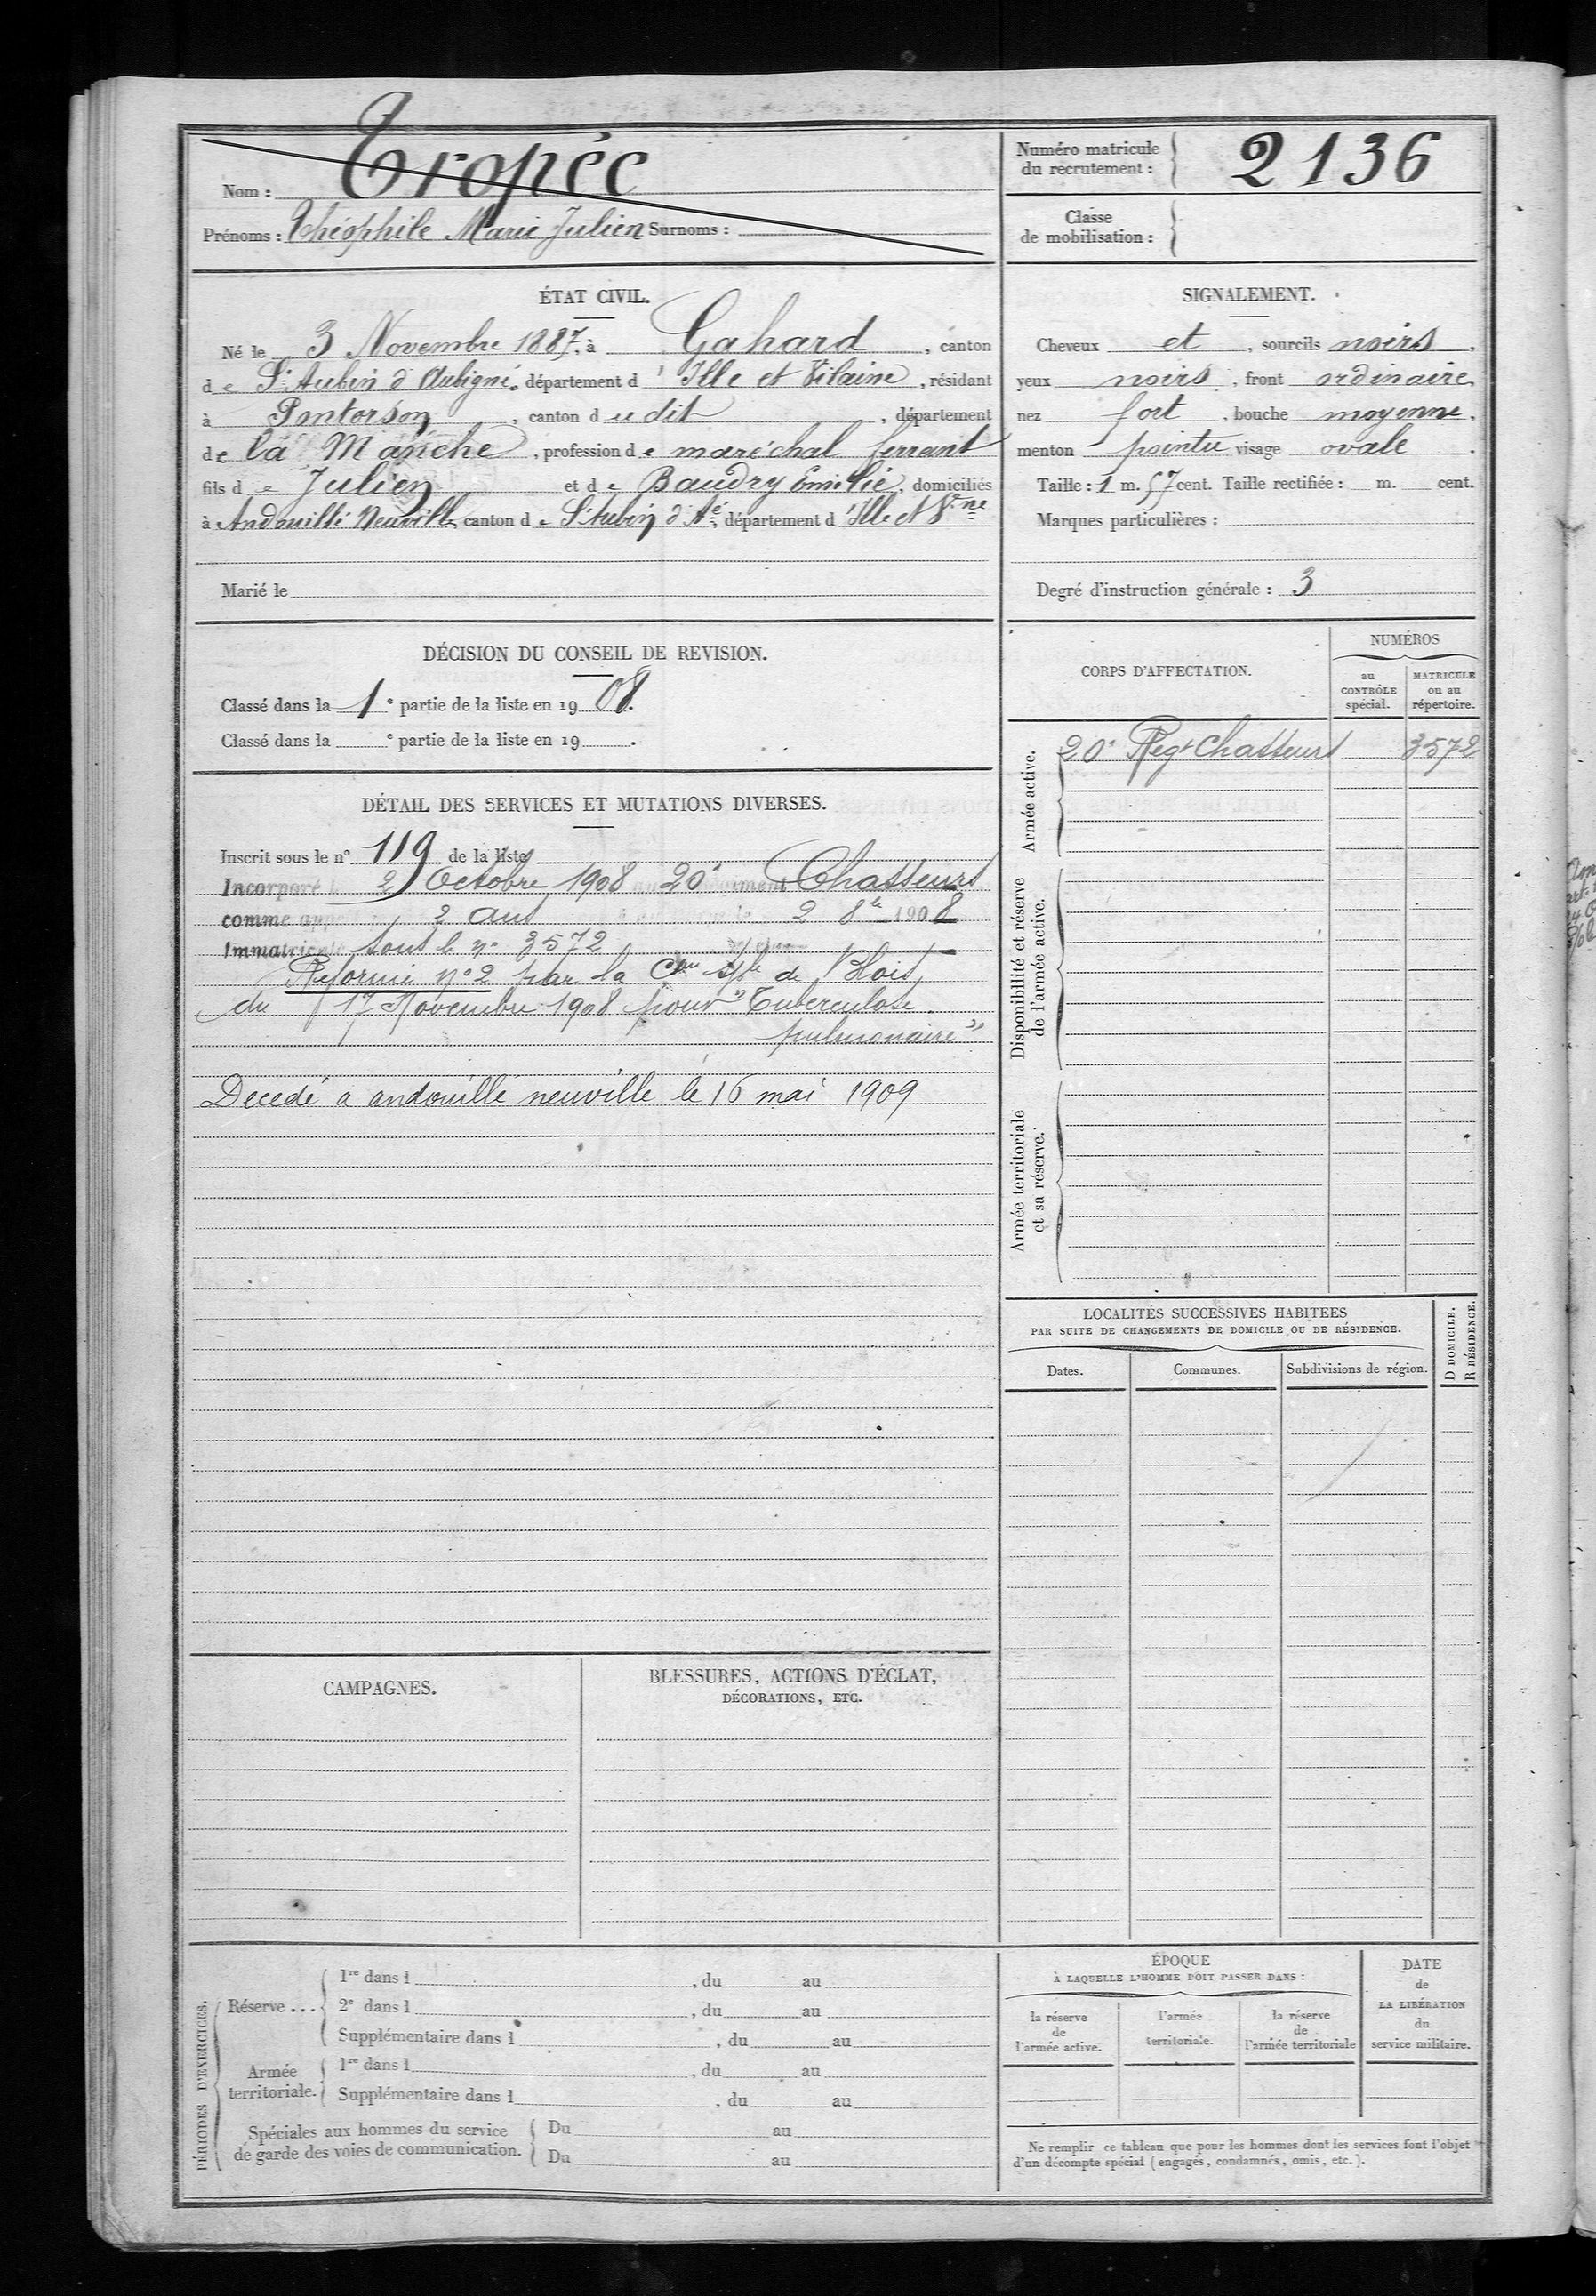 Nom : Tropée
Prénoms : Théophile Marie Julien Surnoms :
Numéro matricule
du recrutement : 2136
Classe
de mobilisation :
ÉTAT CIVIL.
Né le 3 Novembre 1887, à Gahard, canton
de St Aubin d'Aubigné, département d'Ille et Vilaine, résidant
à Pontorson, canton du dit, département
de la Manche, profession de maréchal ferrant
fils de Julien et de Baudry Emilie, domiciliés
à Andouillé Neuville, canton de St Aubin d'Aé, département d'Ille et Vne
Marié le
SIGNALEMENT.
Cheveux et, sourcils noirs,
yeux noirs, front ordinaire,
nez fort, bouche moyenne,
menton pointu visage ovale.
Taille : 1 m. 57 cent. Taille rectifiée : m. cent.
Marques particulières :
Degré d'instruction générale : 3
DÉCISION DU CONSEIL DE REVISION.
Classé dans la 1e partie de la liste en 1908.
Classé dans la e partie de la liste en 19 .
DÉTAIL DES SERVICES ET MUTATIONS DIVERSES.
Inscrit sous le n° 119 de la liste
Incorporé 2 Octobre 1908 20e Chasseurs
comme 2 ans 2 8bre 1908
Immatriculé sous le n° 3572
Réformé n° 2 par la Con Sple de Blois
du 17 Novembre 1908 pour "Tuberculose
pulmonaire"
Decedé a andouillé neuville le 16 mai 1909
CORPS D'AFFECTATION.
NUMÉROS
au
CONTRÔLE
spécial.
MATRICULE
ou au
répertoire.
Armée active.
20e Regt Chasseurs 3572
Disponibilité et réserve
de l'armée active.
Armée territoriale
et sa réserve.
LOCALITÉS SUCCESSIVES HABITÉES
PAR SUITE DE CHANGEMENTS DE DOMICILE OU DE RÉSIDENCE.
D DOMICILE.
R RÉSIDENCE.
Dates. Communes. Subdivisions de région.
CAMPAGNES.
BLESSURES, ACTIONS D'ÉCLAT,
DÉCORATIONS, ETC.
PÉRIODES D'EXERCICES.
Réserve ...
1re dans l , du au
2e dans l , du au
Supplémentaire dans l , du au
Armée
territoriale.
1re dans l , du au
Supplémentaire dans l , du au
Spéciales aux hommes du service
de garde des voies de communication.
Du au
Du au
ÉPOQUE
À LAQUELLE L'HOMME DOIT PASSER DANS :
la réserve
de
l'armée active.
l'armée
territoriale.
la réserve
de
l'armée territoriale
DATE
de
LA LIBÉRATION
du
service militaire.
Ne remplir ce tableau que pour les hommes dont les services font l'objet
d'un décompte spécial (engagés, condamnés, omis, etc.).